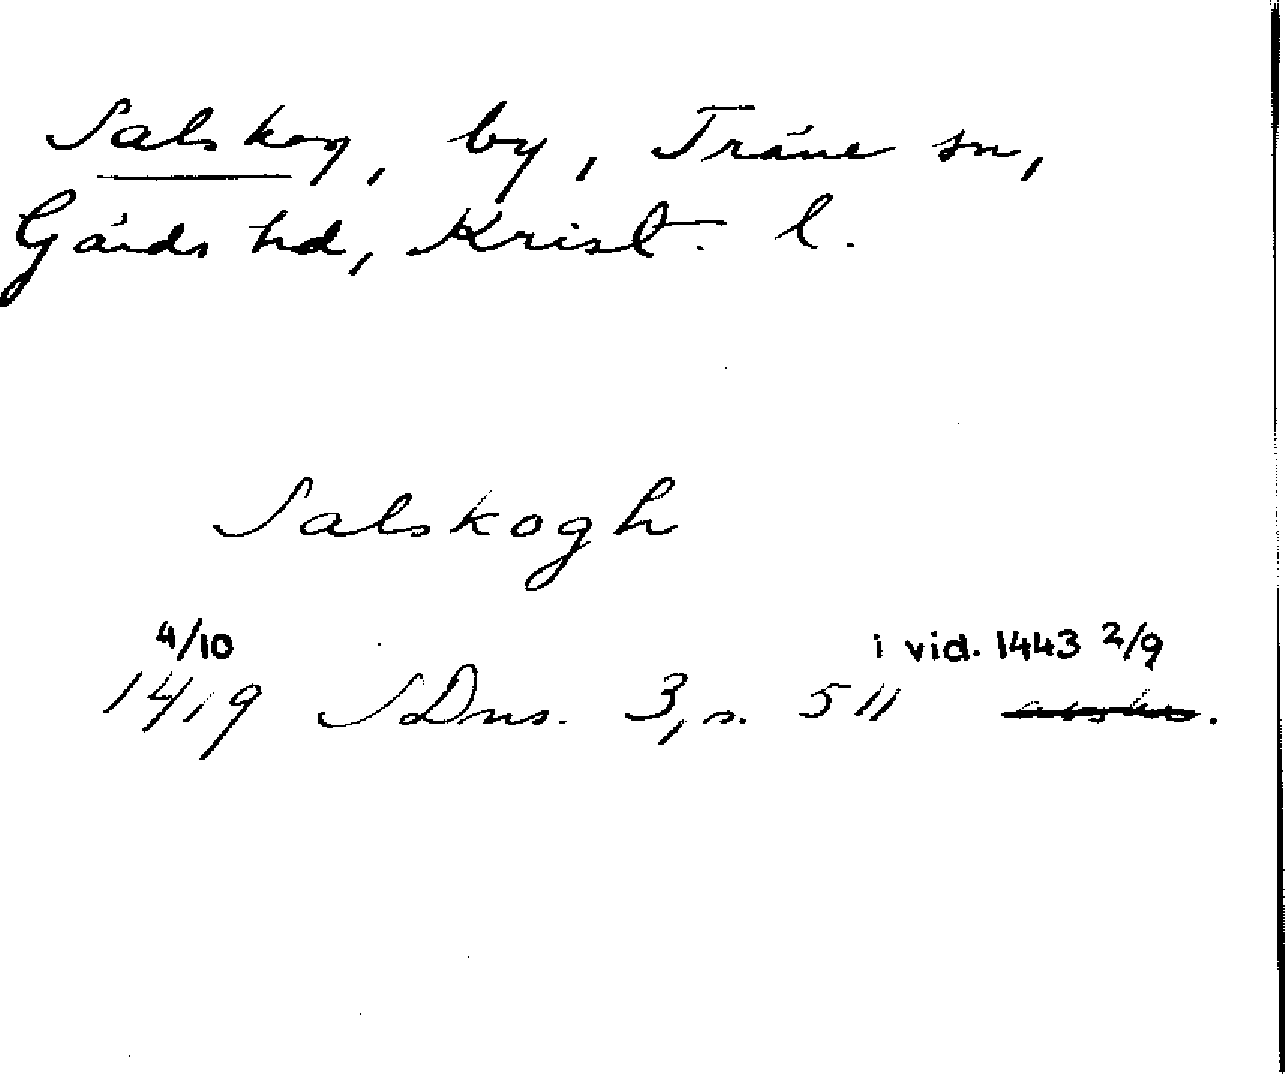 Salskog, by, Träne sn,
Gärds hd, Krist. l.
Salskogh
4/10 i vid. 1443 2/9
1419 SDns. 3, s. 511